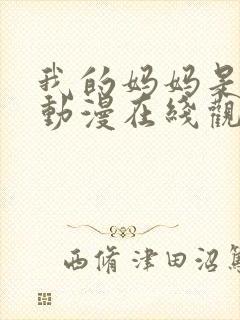 我的妈妈呆
動漫在綫觀
西脩津田沼篤